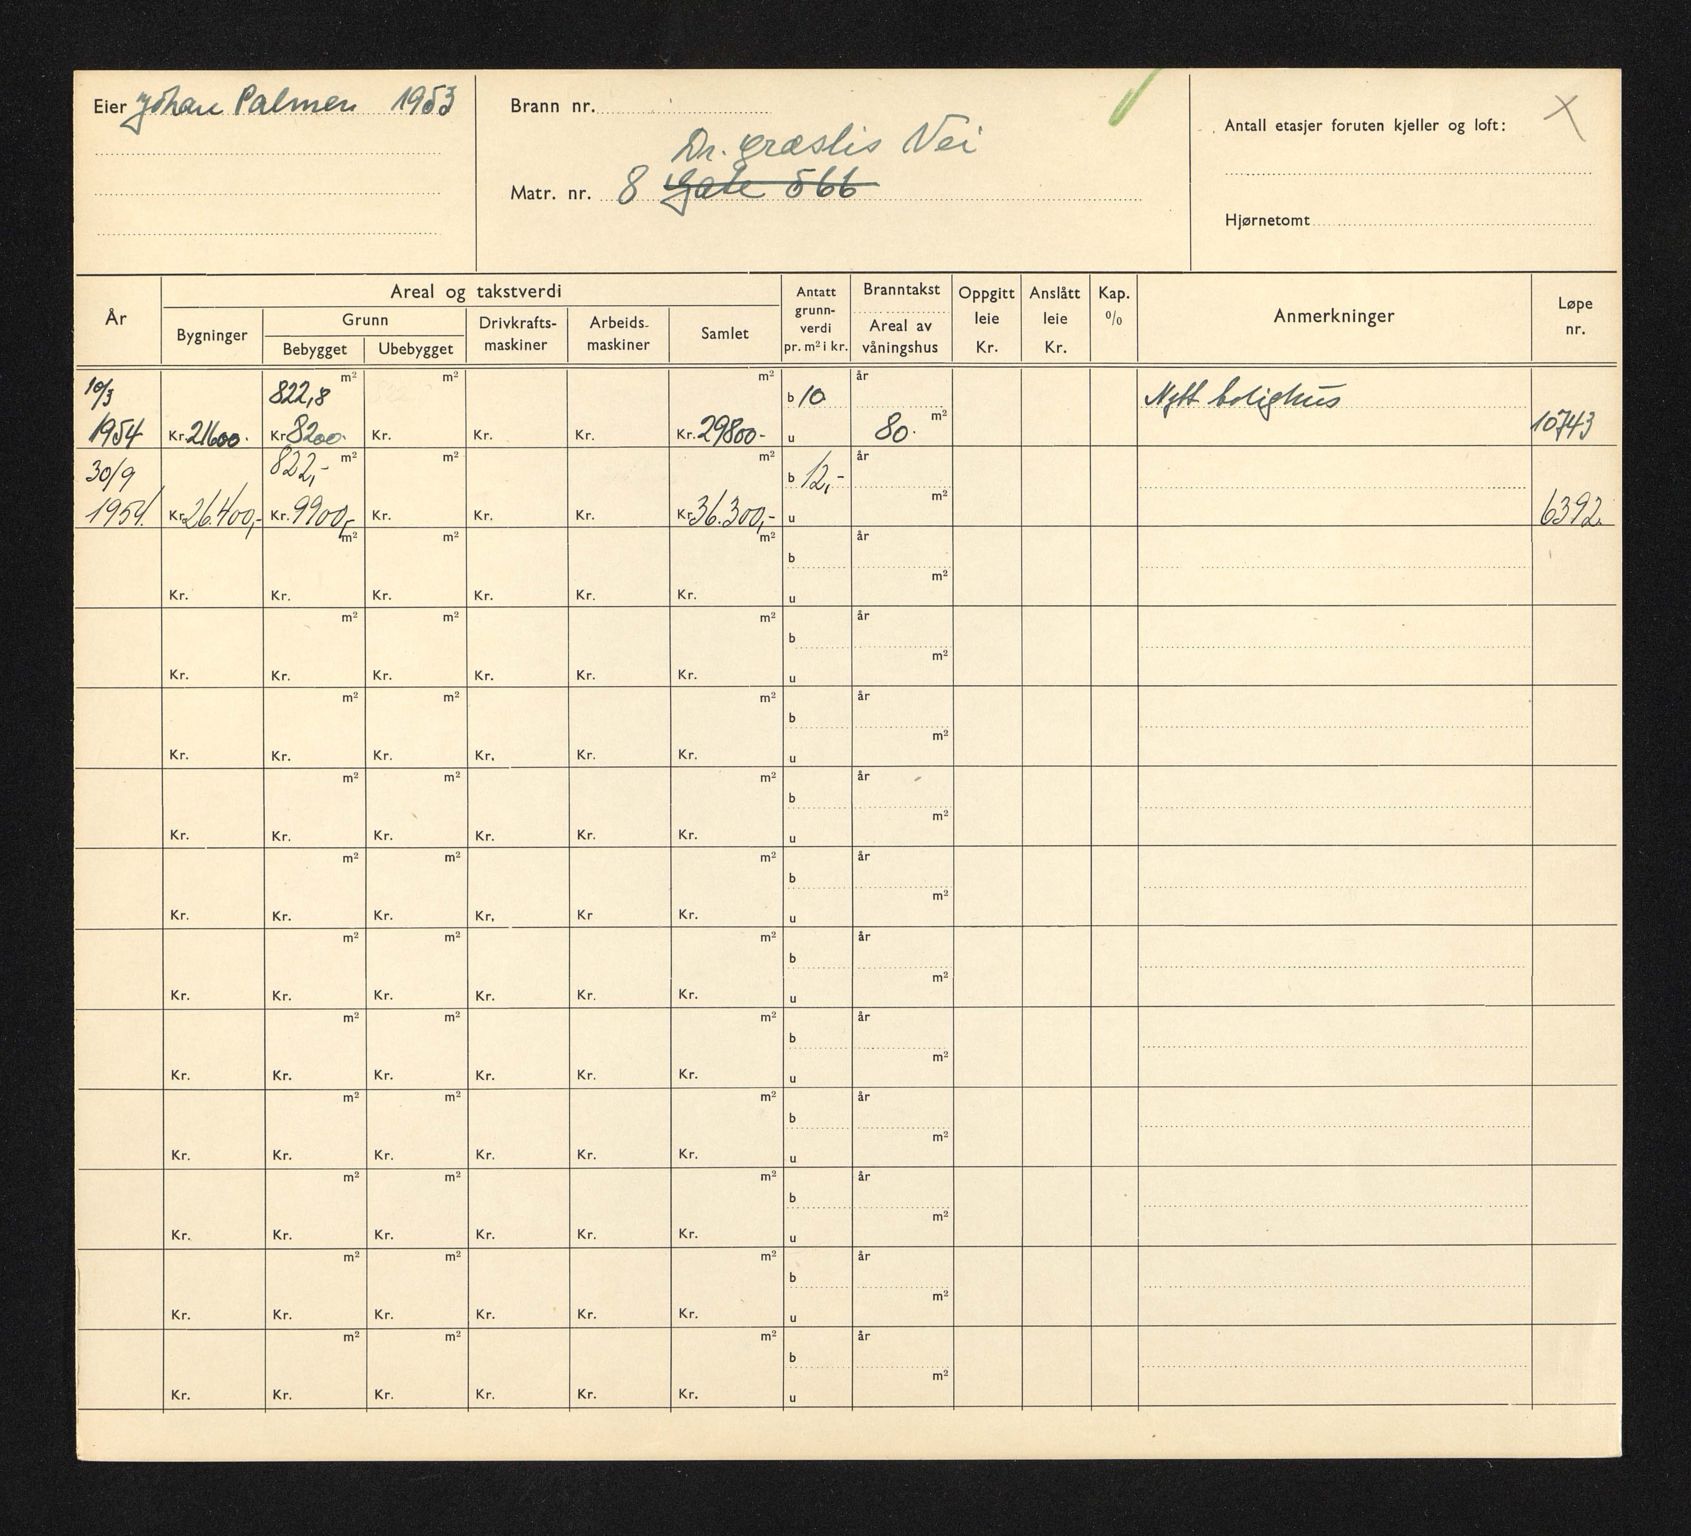 Eier Johan Palmen 1953
Brann nr.
Dr. græslis Vei
Matr. nr. 8 Gate 566
Antall etasjer foruten kjeller og loft: X
Hjørnetomt
År
Areal og takstverdi
Bygninger
Grunn
Bebygget Ubebygget
Drivkrafts-
maskiner
Arbeids-
maskiner
Samlet
Antatt
grunn-
verdi
pr. m² i kr.
Branntakst
Areal av
våningshus
Oppgitt
leie
Kr.
Anslått
leie
Kr.
Kap.
%
Anmerkninger
Løpe
nr.
10/3 822,8 m² m² m² b 10 år Nytt bolighus
1954 Kr. 21600. Kr. 8200. Kr. Kr. Kr. Kr. 29800- u 80. m² 10743
30/9 822,- m² m² m² b 12,- år
1954. Kr. 26.400,- Kr. 9900,- Kr. Kr. Kr. Kr. 36.300,- u m² 6392.
m² m² m² b år
Kr. Kr. Kr. Kr. Kr. Kr. u m²
m² m² m² b år
Kr. Kr. Kr. Kr. Kr. Kr. u m²
m² m² m² b år
Kr. Kr. Kr. Kr. Kr. Kr. u m²
m² m² m² b år
Kr. Kr. Kr. Kr. Kr. Kr. u m²
m² m² m² b år
Kr. Kr. Kr. Kr. Kr Kr. u m²
m² m² m² b år
Kr. Kr. Kr. Kr. Kr. Kr. u m²
m² m² m² b år
Kr. Kr. Kr. Kr. Kr. Kr. u m²
m² m² m² b år
Kr. Kr. Kr. Kr. Kr. Kr. u m²
m² m² m² b år
Kr. Kr. Kr. Kr. Kr. Kr. u m²
m² m² m² b år
Kr. Kr. Kr. Kr. Kr. Kr. u m²
m² m² m² b år
Kr. Kr. Kr. Kr. Kr. Kr. u m²